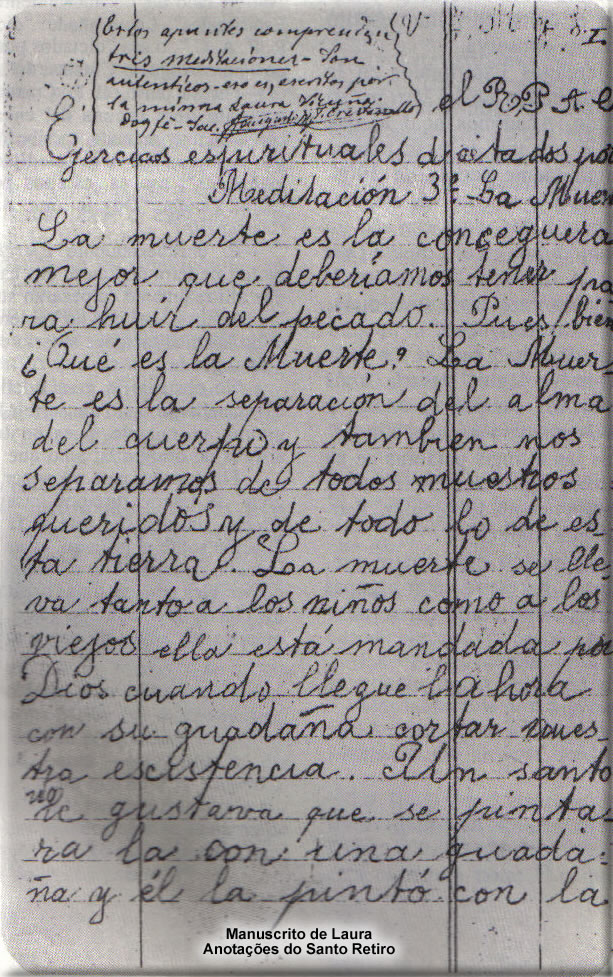 Estos apuntes comprenden
tres meditaciones - Son
autenticos - eso es, escritos por
la misma Laura Vicuña
Doy fé - Sac.
I
el R. P. A.
Ejercicios espirituales dictados por
Meditación 3ª La Muer
La muerte es la conceguera
mejor que deberíamos tener pa
ra huir del pecado. Pues bien
¿Qué es la Muerte? La Muer-
te es la separación del alma
del cuerpo y tambien nos
separamos de todos nuestros
queridos y de todo lo de es-
ta tierra. La muerte se lle-
va tanto a los niños como a los
viejos ella está mandada por
Dios cuando llegue la hora
con su guadaña cortar nues-
tra escistencia. A Un santo
no le gustava que se pinta-
ra la con una guada-
ña y él la pintó con la
Manuscrito de Laura
Anotações do Santo Retiro